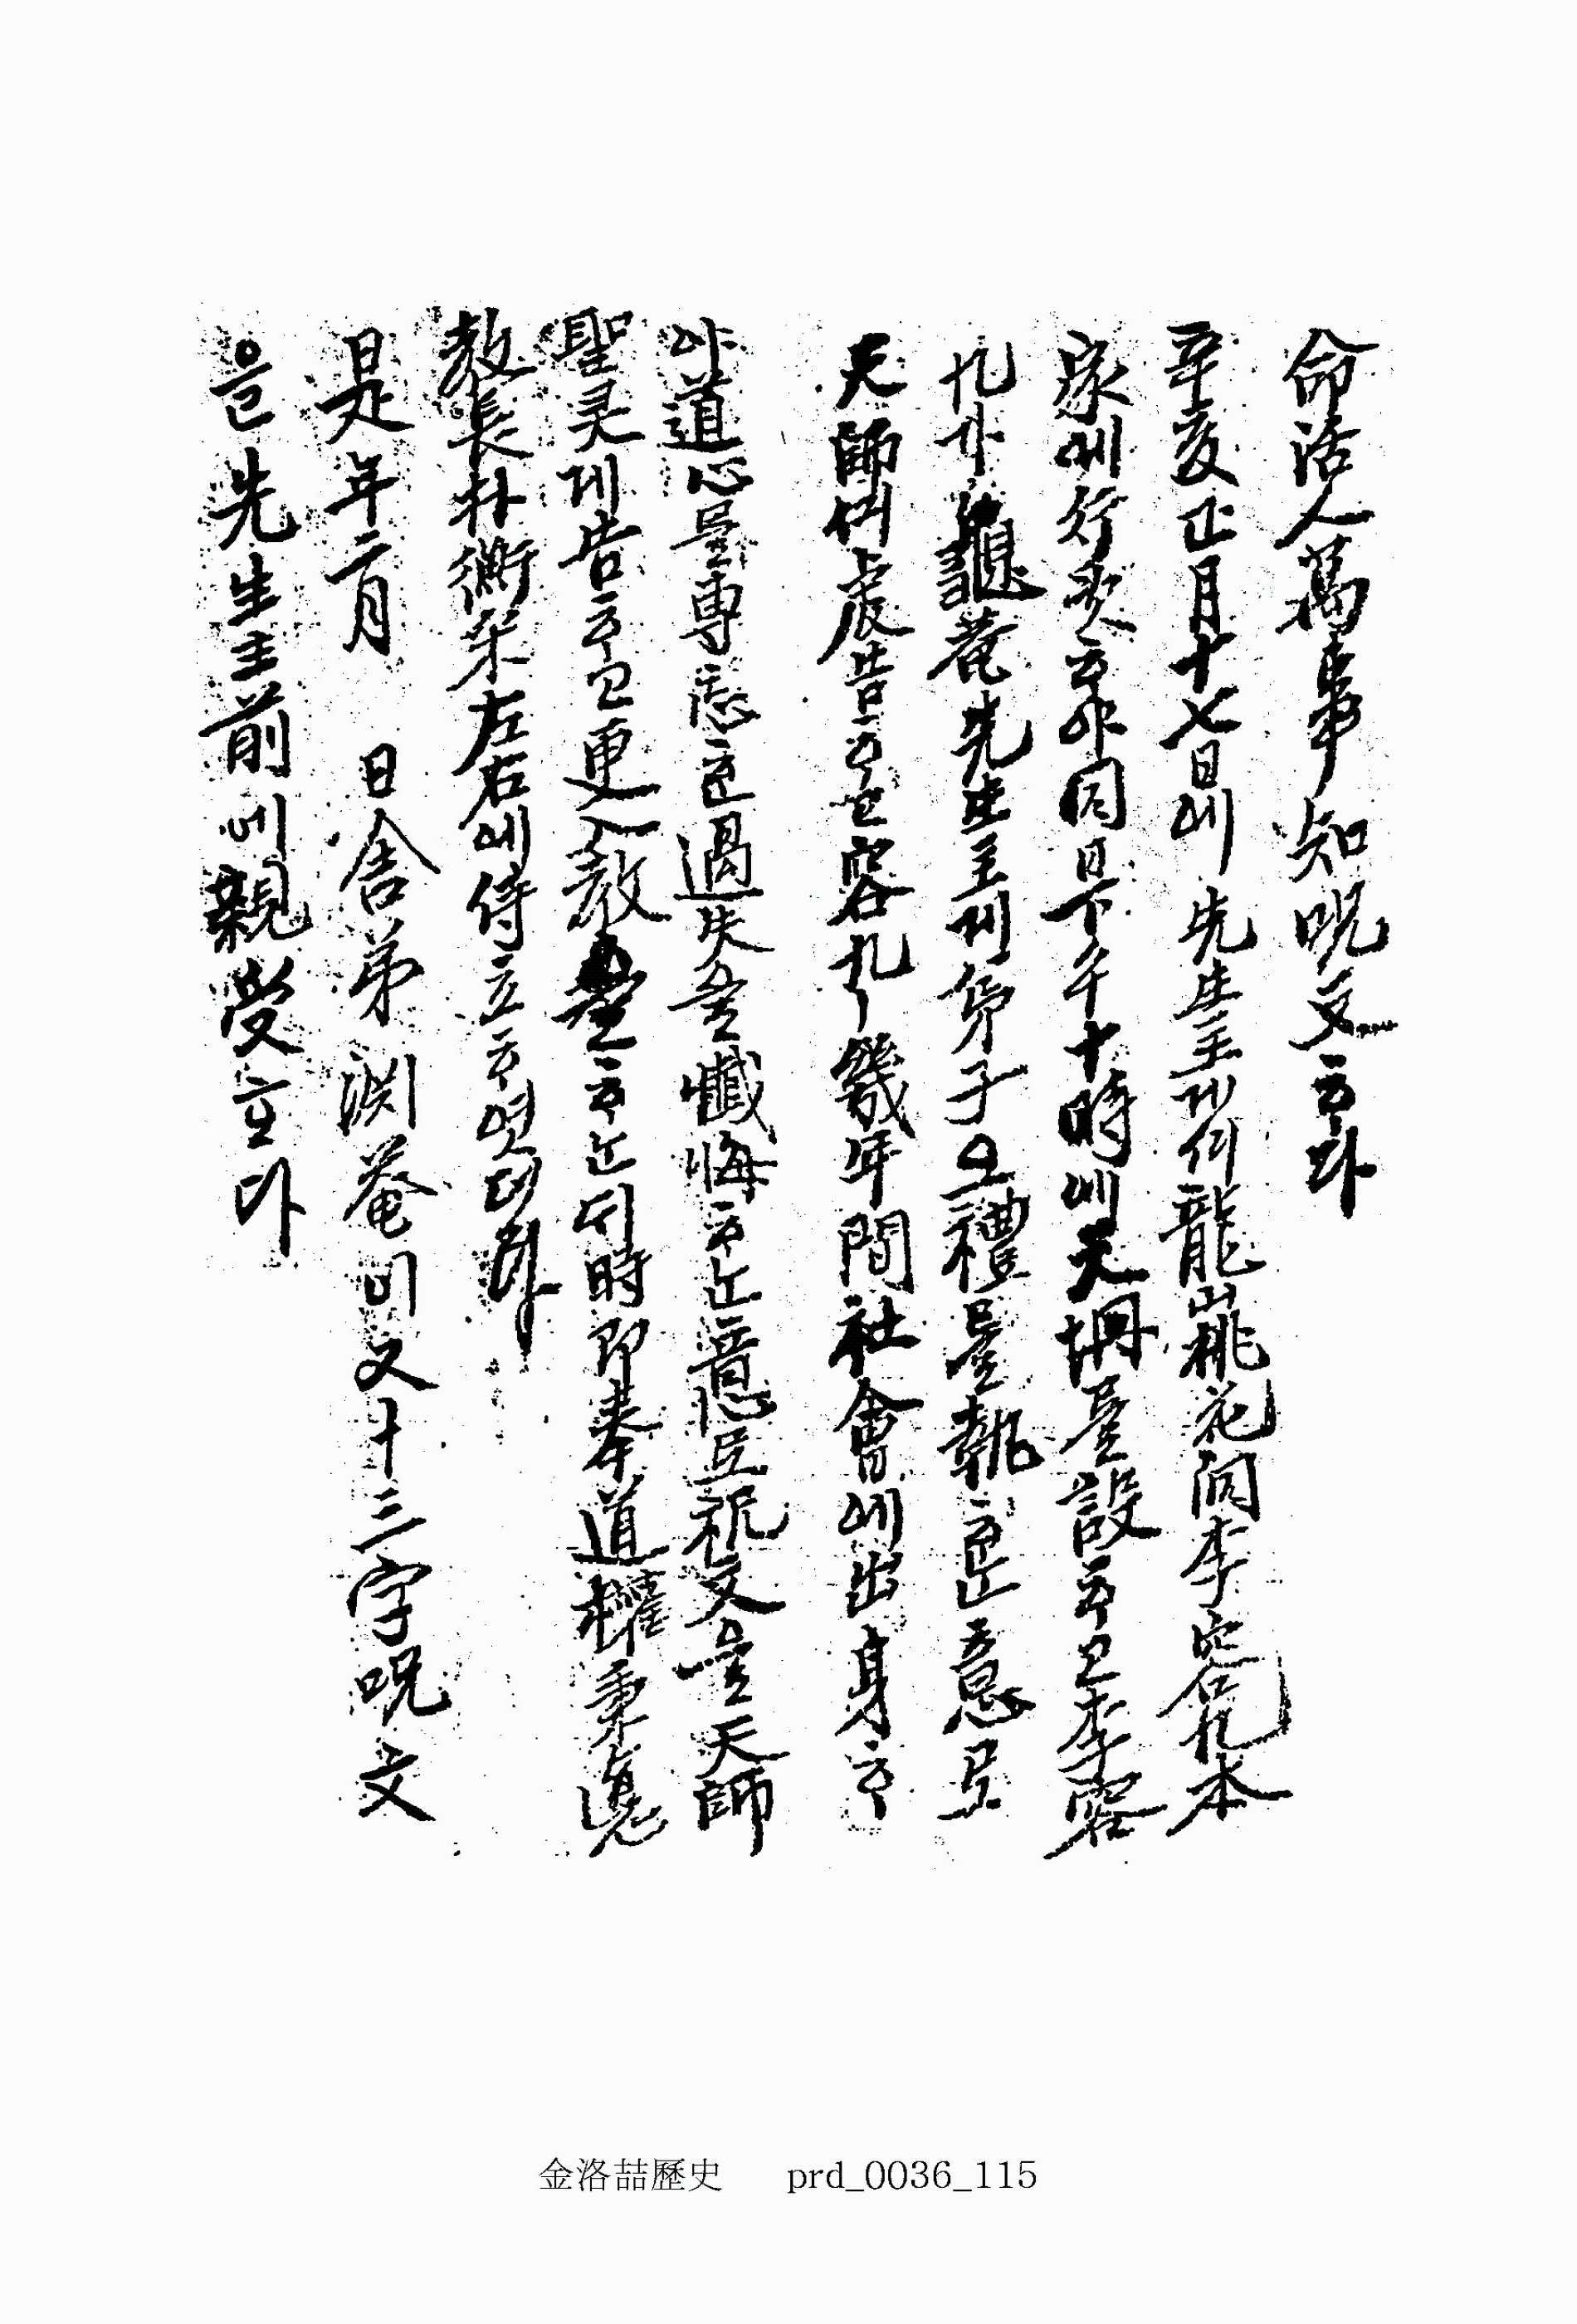 命活人萬事知呪文하다
辛亥正月十七日에 先生主게셔龍山桃花洞李容九本
家에行次하야同日下午十時에天壇를設하고李容
九가龜菴先生主게弟子의禮를執하난意로
天師셔虔告하고容九가幾年間社會에出身하
야道心를專恙한過失을懺悔하는意로祝文을天師
聖灵게告하고更히敎를하는디時卽奉道權秉悳
敎長朴衡采左右에侍立하엿더라
是年二月 日舍弟淵菴이又十三字呪文
을先生主前에親受하다
金洛喆歷史 prd_0036_115